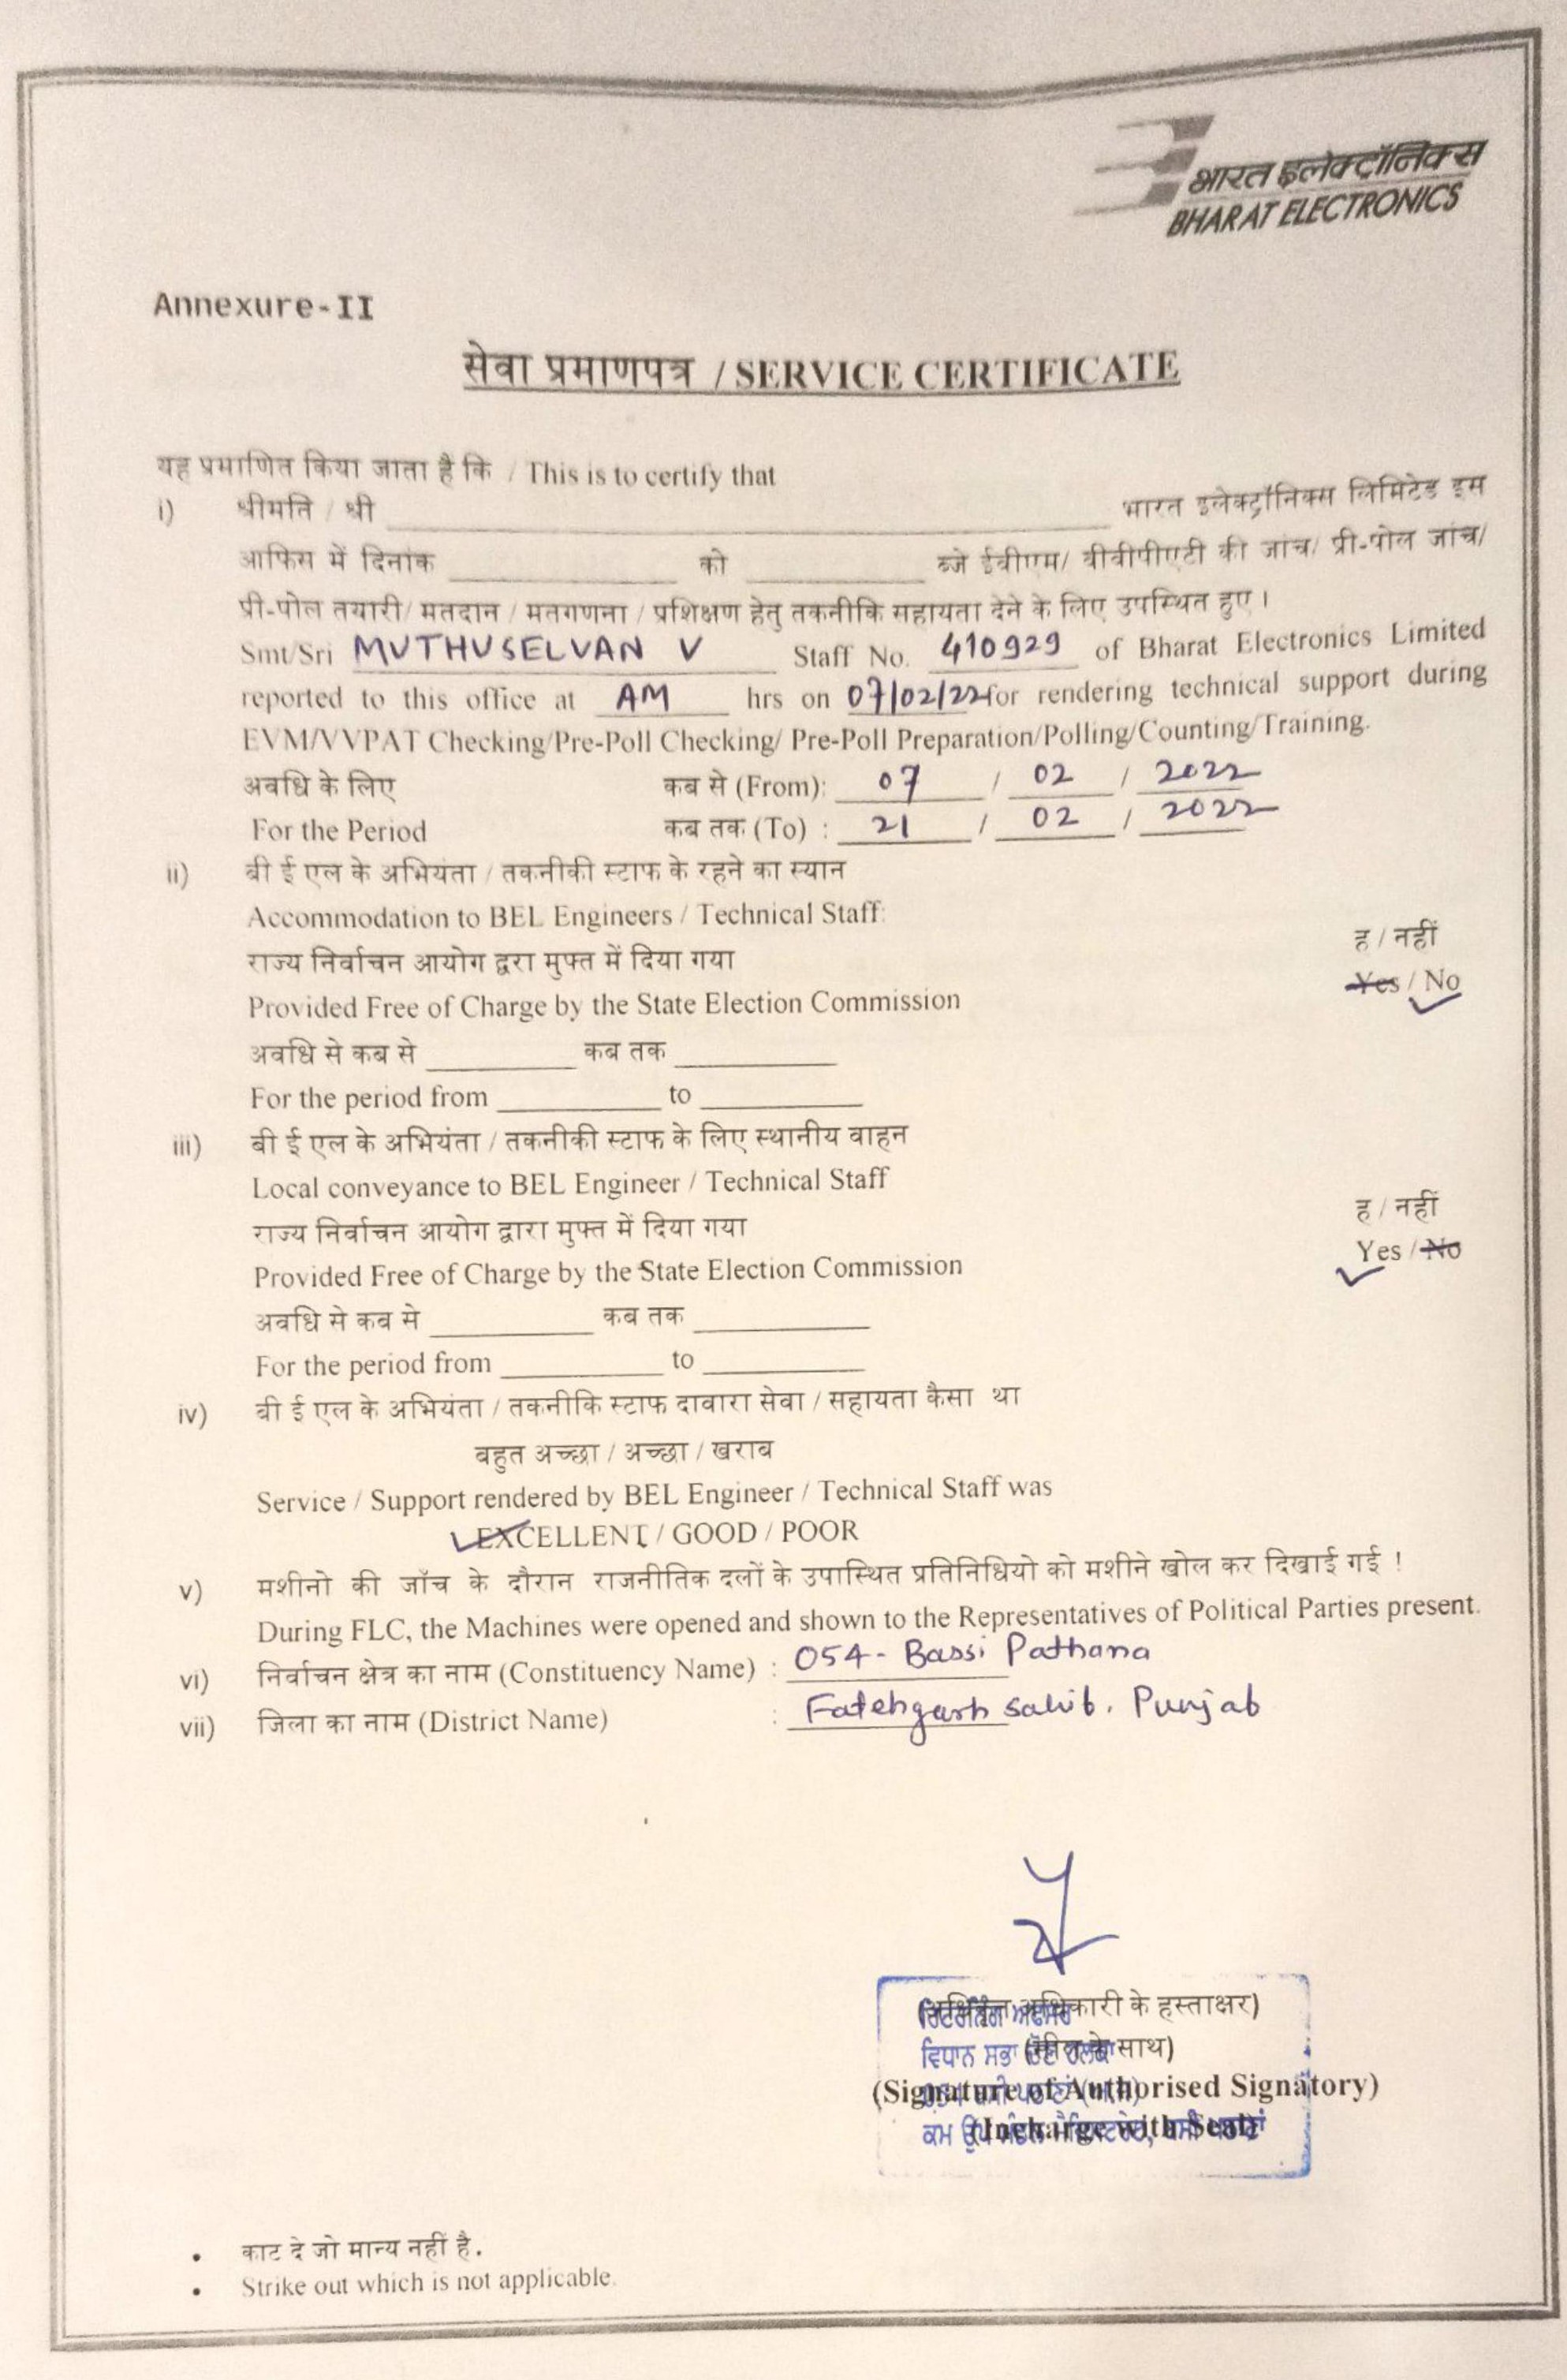 भारत इलेक्ट्रॉनिक्स
BHARAT ELECTRONICS
Annexure-II
सेवा प्रमाणपत्र / SERVICE CERTIFICATE
यह प्रमाणित किया जाता है कि / This is to certify that
i) श्रीमति / श्री ____________ भारत इलेक्ट्रॉनिक्स लिमिटेड इस
आफिस में दिनांक ____________ को ____________ ब्जे ईवीएम/ वीवीपीएटी की जांच/ प्री-पोल जांच/
प्री-पोल तयारी/ मतदान / मतगणना / प्रशिक्षण हेतु तकनीकि सहायता देने के लिए उपस्थित हुए।
Smt/Sri MUTHUSELVAN V Staff No. 410929 of Bharat Electronics Limited
reported to this office at AM hrs on 07/02/22 for rendering technical support during
EVM/VVPAT Checking/Pre-Poll Checking/ Pre-Poll Preparation/Polling/Counting/Training.
अवधि के लिए कब से (From): 07 / 02 / 2022
For the Period कब तक (To) : 21 / 02 / 2022
ii) बी ई एल के अभियंता / तकनीकी स्टाफ के रहने का स्यान
Accommodation to BEL Engineers / Technical Staff:
राज्य निर्वाचन आयोग द्वरा मुफ्त में दिया गया ह / नहीं
Provided Free of Charge by the State Election Commission Yes / No
अवधि से कब से ____________ कब तक ____________
For the period from ____________ to ____________
iii) बी ई एल के अभियंता / तकनीकी स्टाफ के लिए स्थानीय वाहन
Local conveyance to BEL Engineer / Technical Staff
राज्य निर्वाचन आयोग द्वारा मुफ्त में दिया गया ह / नहीं
Provided Free of Charge by the State Election Commission Yes / No
अवधि से कब से ____________ कब तक ____________
For the period from ____________ to ____________
iv) बी ई एल के अभियंता / तकनीकि स्टाफ दावारा सेवा / सहायता कैसा था
बहुत अच्छा / अच्छा / खराब
Service / Support rendered by BEL Engineer / Technical Staff was
EXCELLENT / GOOD / POOR
v) मशीनो की जाँच के दौरान राजनीतिक दलों के उपास्थित प्रतिनिधियो को मशीने खोल कर दिखाई गई !
During FLC, the Machines were opened and shown to the Representatives of Political Parties present.
vi) निर्वाचन क्षेत्र का नाम (Constituency Name) : 054- Bassi Pathana
vii) जिला का नाम (District Name) : Fatehgarh Sahib. Punjab
अधिकारी के हस्ताक्षर)
के साथ)
ਵਿਧਾਨ ਸਭਾ
(Signature of Authorised Signatory)
(Incharge with Seal)
• काट दे जो मान्य नहीं है.
• Strike out which is not applicable.